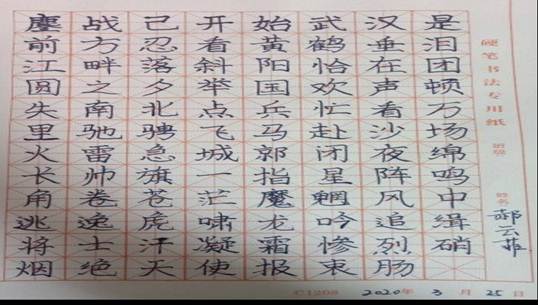 鏖战己开始武汉是
前方忍看黄鹤垂泪
江畔落斜阳怡在团
圆之夕举国欢声顿
失南北点兵忙看万
里驰骋飞马赴沙场
火雷急城郭闭夜绵
长帅旗一指星阵鸣
角卷苍茫魔风中
逃逸虎啸龙吟追缉
将士汗凝霜惨烈硝
烟绝天使报衷肠
硬笔书法专用纸
班级
姓名 郝云菲
2020年3月25日